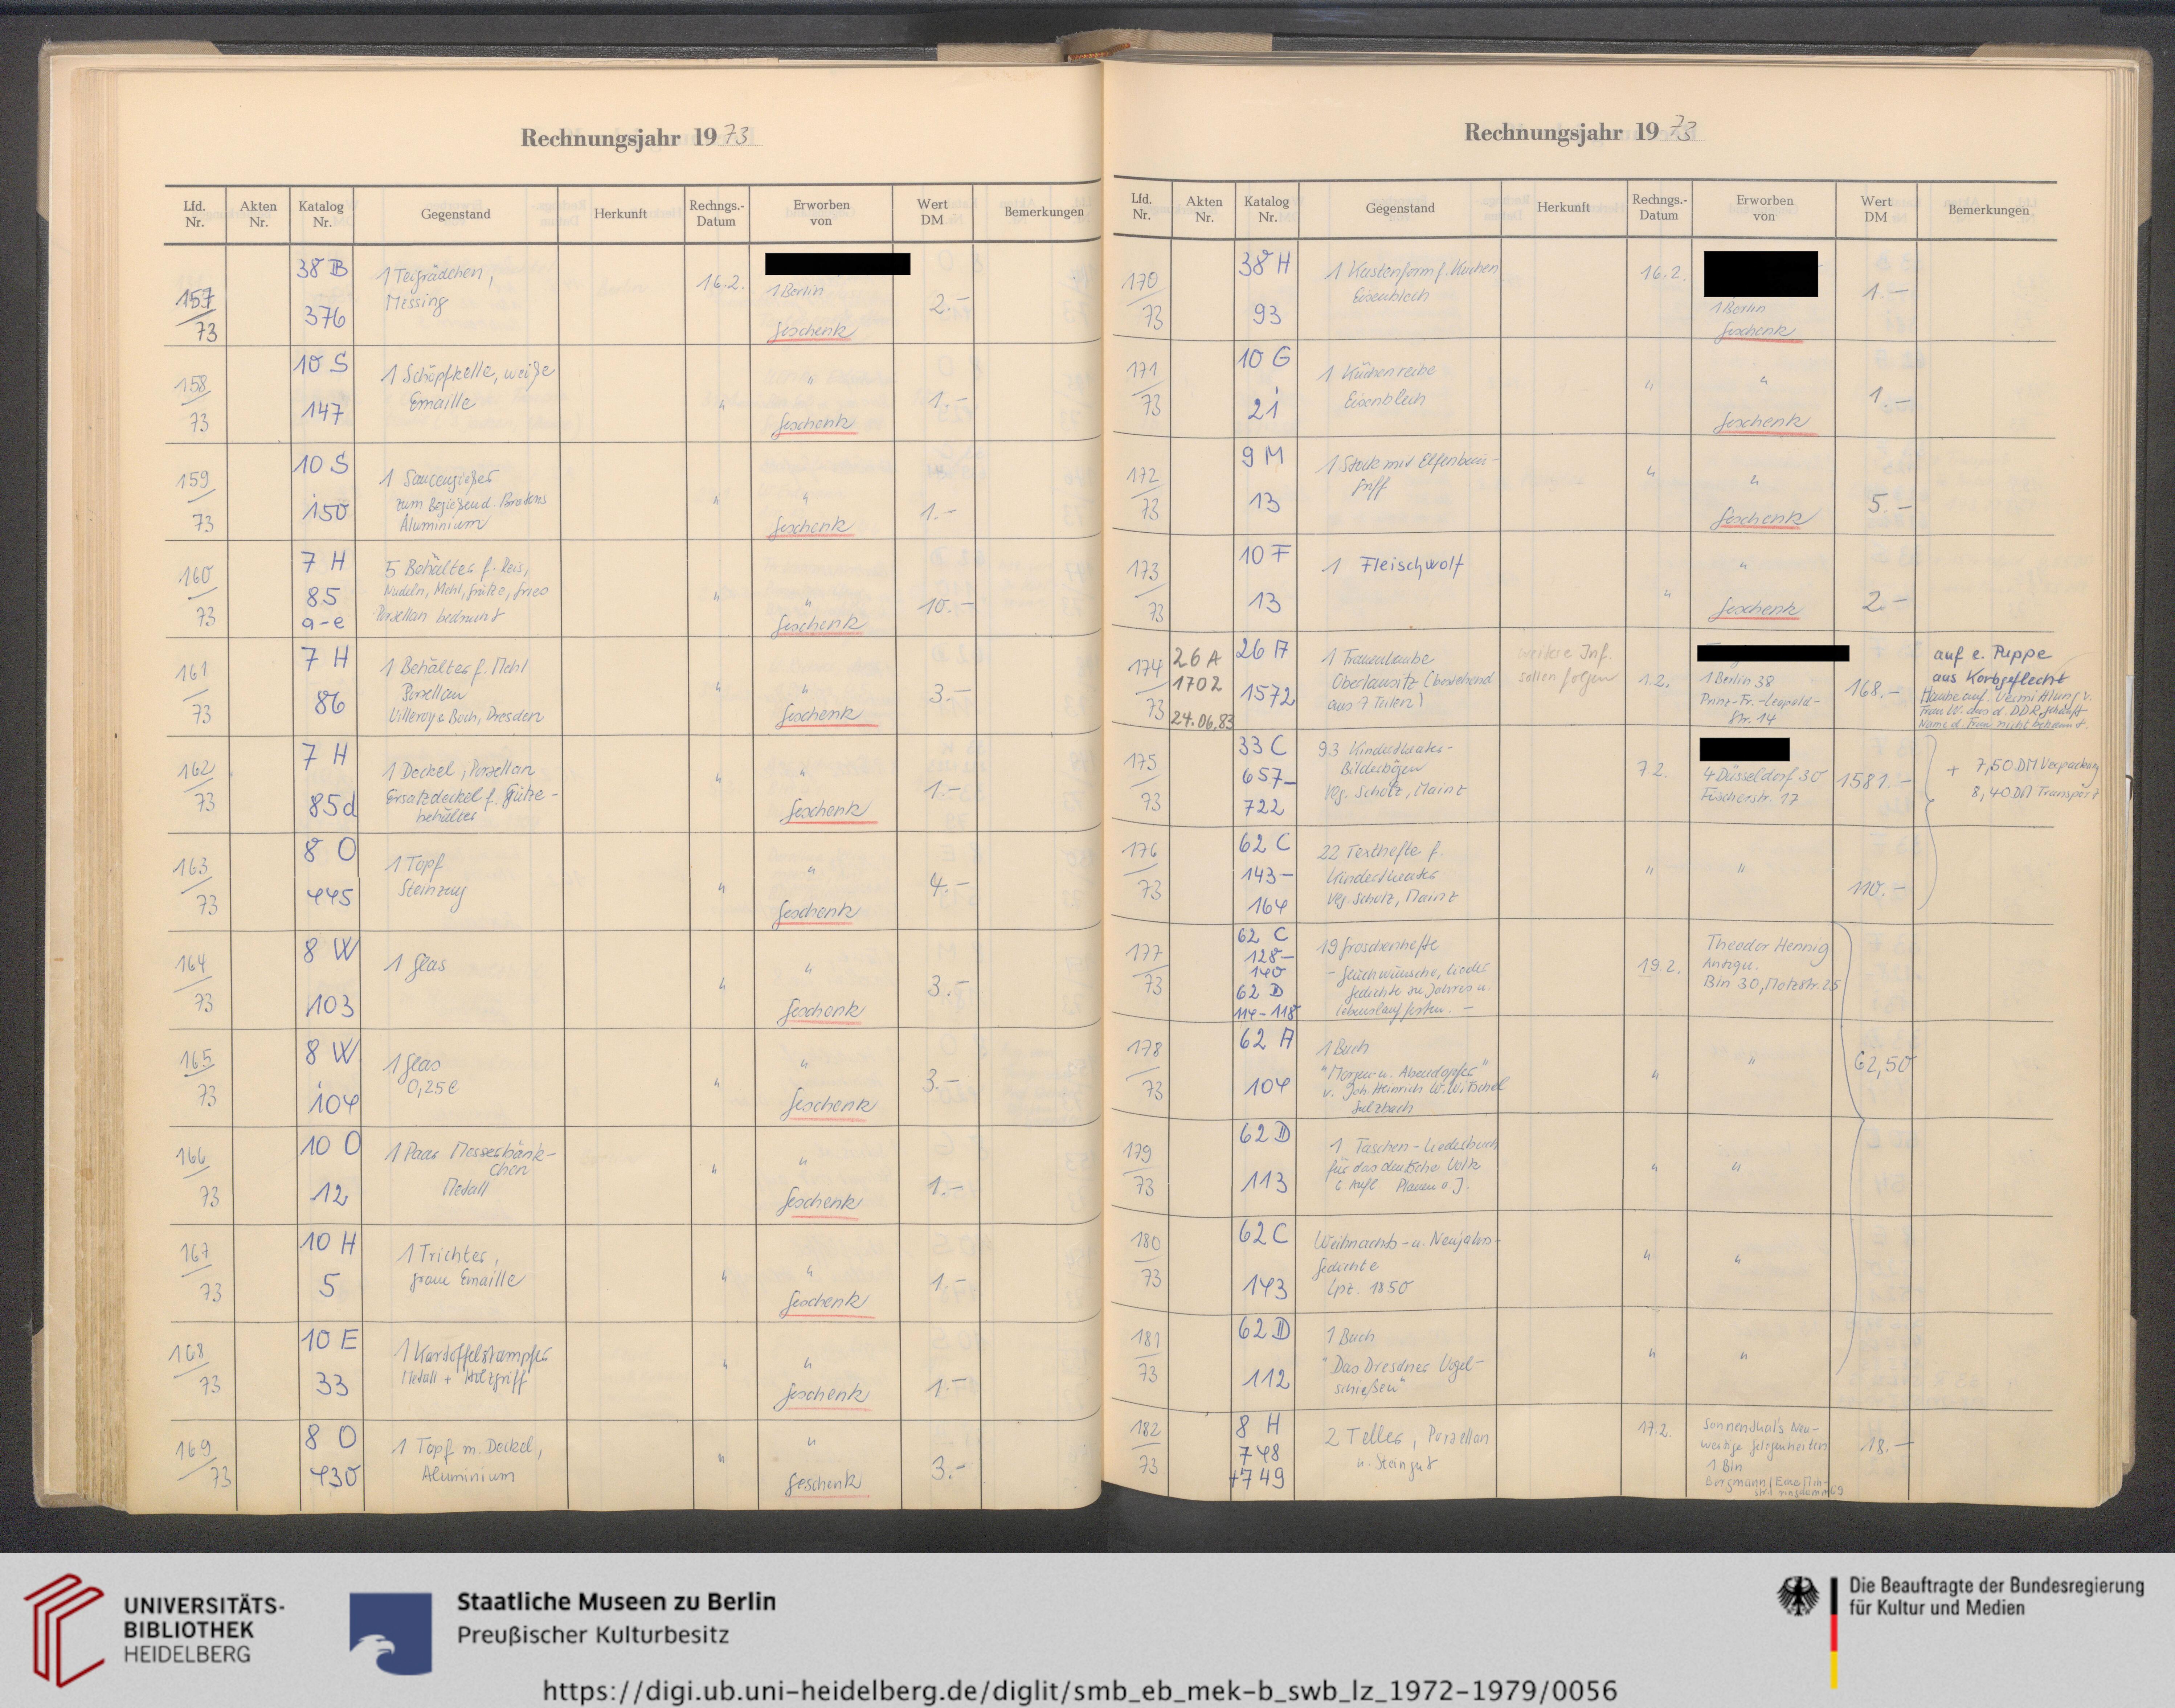 Rechnungsjahr 1973
Lfd. Nr. Akten Nr. Katalog Nr. Gegenstand Herkunft Rechngs.-Datum Erworben von Wert DM Bemerkungen
157/73 38 B 376 1 Teigrädchen, Messing 16.2. 1 Berlin Geschenk 2.-
158/73 10 S 147 1 Schöpfkelle, weiße Emaille " " Geschenk 1.-
159/73 10 S 150 1 Saucengießer zum Begießen d. Bratens Aluminium " " Geschenk 1.-
160/73 7 H 85 a-e 5 Behälter f. Reis, Nudeln, Mehl, Grütze, Gries Porzellan bedruckt " " Geschenk 10.-
161/73 7 H 86 1 Behälter f. Mehl Porzellan Villeroy & Boch, Dresden " " Geschenk 3.-
162/73 7 H 85d 1 Deckel, Porzellan Ersatzdeckel f. Grütze-behälter " " Geschenk 1.-
163/73 8 O 445 1 Topf Steinzeug " " Geschenk 4.-
164/73 8 W 103 1 Glas " " Geschenk 3.-
165/73 8 W 104 1 Glas 0,25 l " " Geschenk 3.-
166/73 10 O 12 1 Paar Messerbänk-chen Metall " " Geschenk 1.-
167/73 10 H 5 1 Trichter, graue Emaille " " Geschenk 1.-
168/73 10 E 33 1 Kartoffelstampfer Metall + Holzgriff " " Geschenk 1.-
169/73 8 O 430 1 Topf m. Deckel, Aluminium " " Geschenk 3.-
Rechnungsjahr 1973
Lfd. Nr. Akten Nr. Katalog Nr. Gegenstand Herkunft Rechngs.-Datum Erworben von Wert DM Bemerkungen
170/73 38 H 93 1 Kastenform f. Kuchen Eisenblech 16.2. 1 Berlin Geschenk 1.-
171/73 10 G 21 1 Küchenreibe Eisenblech " " Geschenk 1.-
172/73 9 M 13 1 Stock mit Elfenbein-griff " " Geschenk 5.-
173/73 10 F 13 1 Fleischwolf " " Geschenk 2.-
174/73 26 A 1702 24.06.83 26 A 1572 1 Trauerhaube Oberlausitz (bestehend aus 7 Teilen) weitere Inf. sollen folgen 1.2. 1 Berlin 38 Prinz-Fr.-Leopold-Str. 14 168.- auf e. Puppe aus Korbgeflecht Haube auf Vermittlung v. Frau W. aus d. DDR Name d. Frau nicht bekannt.
175/73 33 C 657-722 93 Kindertheater-Bilderbögen Vlg. Scholz, Mainz 7.2. 4 Düsseldorf 30 Fischerstr. 17 1581.- + 7,50 DM Verpackung 8,40 DM Transport
176/73 62 C 143-164 22 Texthefte f. Kindertheater Vlg. Scholz, Mainz " " 110.-
177/73 62 C 128-140 62 D 114-118 19 Groschenhefte - Glückwünsche, Lieder Gedichte zu Jahres u. Lebenslauffesten. - 19.2. Theodor Hennig Antiqu. Bln 30, Motzstr. 25
178/73 62 A 104 1 Buch "Morgen- u. Abendopfer" v. Joh. Heinrich W. Witschel Sulzbach " " 62,50
179/73 62 D 113 1 Taschen-Liederbuch für das deutsche Volk 6 Aufl Plauen o J. " "
180/73 62 C 143 Weihnachts- u. Neujahrs-Gedichte Lpz. 1850 " "
181/73 62 D 112 1 Buch "Das Dresdner Vogel-schießen" " "
182/73 8 H 748 +749 2 Teller, Porzellan u. Steingut 17.2. Sonnenthal's Neu-wertige Gelegenheiten 1 Bln 18.-
UNIVERSITÄTS-
BIBLIOTHEK
HEIDELBERG
Staatliche Museen zu Berlin
Preußischer Kulturbesitz
Die Beauftragte der Bundesregierung
für Kultur und Medien
https://digi.ub.uni-heidelberg.de/diglit/smb_eb_mek-b_swb_lz_1972-1979/0056